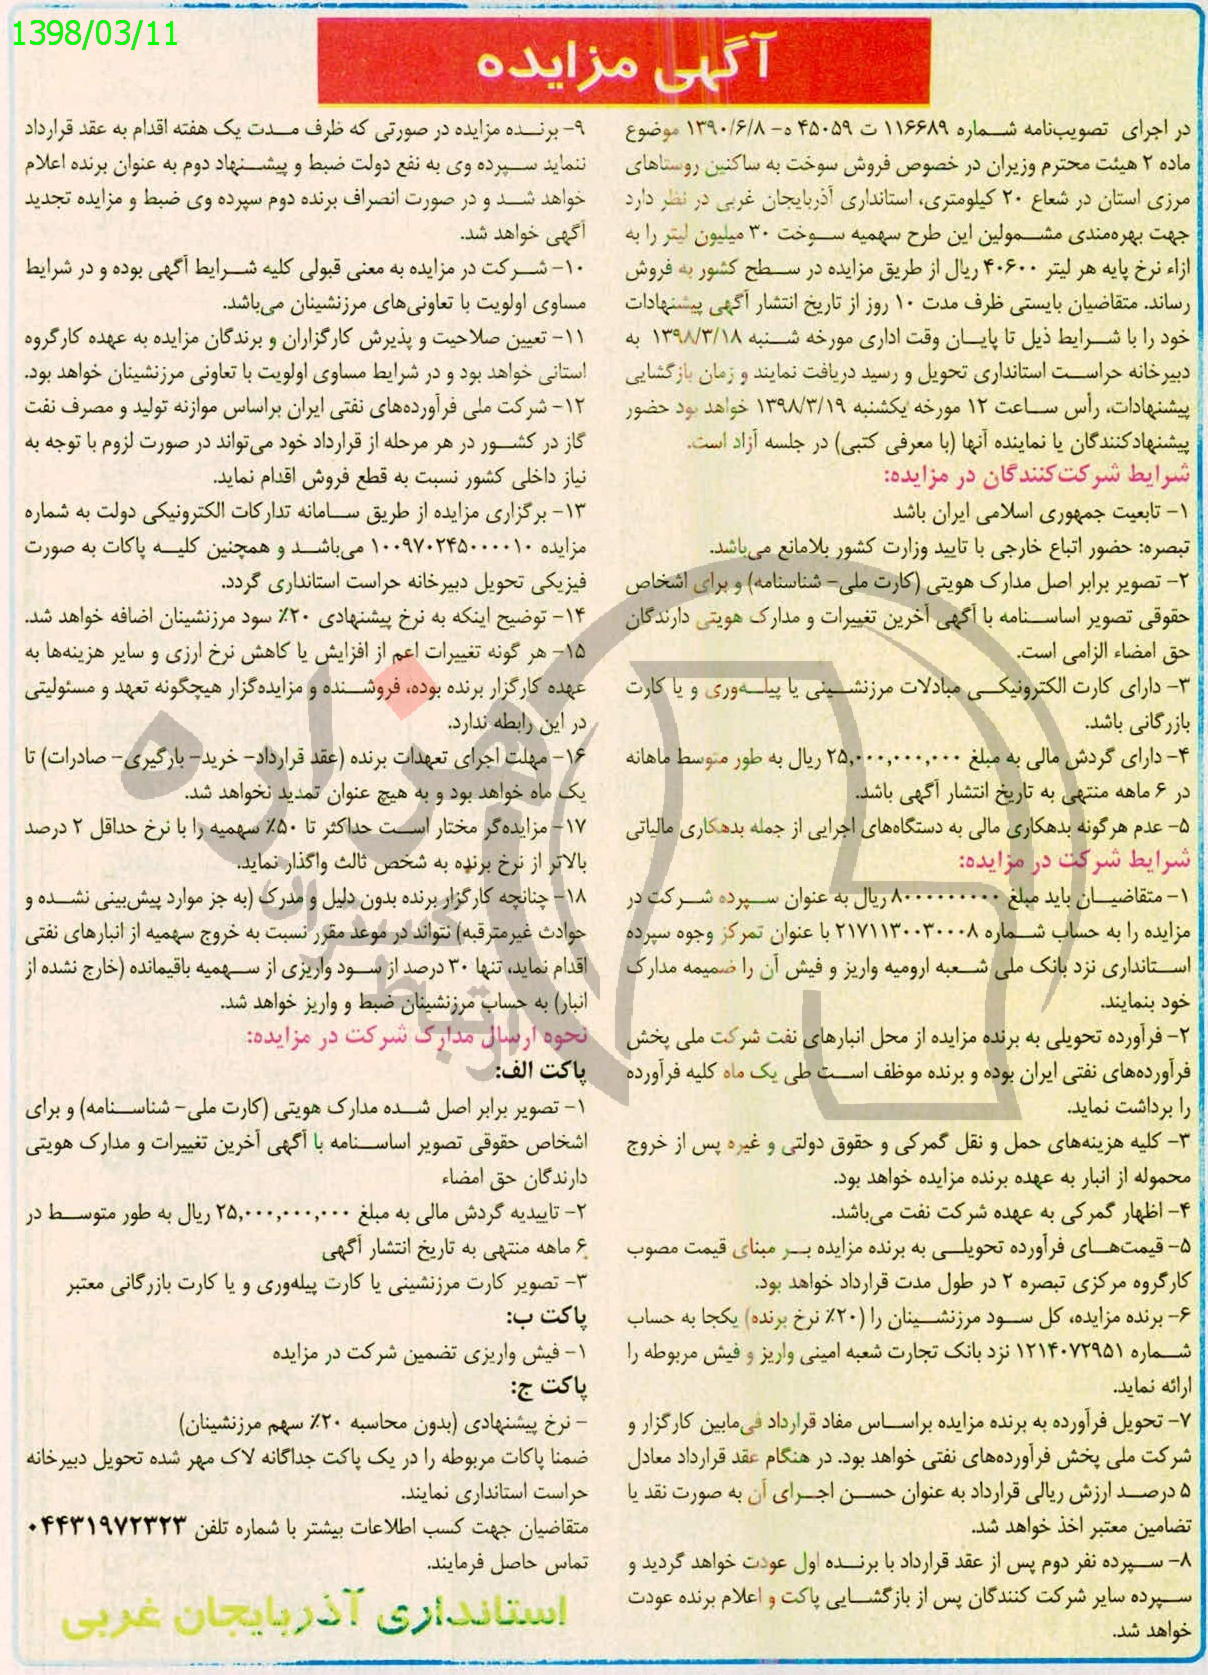 1398/03/11
آگهی مزایده
در اجرای تصویب‌نامه شماره ۱۱۶۶۸۹ ت ۴۵۰۵۹ ه- ۱۳۹۰/۶/۸ موضوع
ماده ۲ هیئت محترم وزیران در خصوص فروش سوخت به ساکنین روستاهای
مرزی استان در شعاع ۲۰ کیلومتری، استانداری آذربایجان غربی در نظر دارد
جهت بهره‌مندی مشمولین این طرح سهمیه سوخت ۳۰ میلیون لیتر را به
ازاء نرخ پایه هر لیتر ۴۰۶۰۰ ریال از طریق مزایده در سطح کشور به فروش
رساند. متقاضیان بایستی ظرف مدت ۱۰ روز از تاریخ انتشار آگهی پیشنهادات
خود را با شرایط ذیل تا پایان وقت اداری مورخه شنبه ۱۳۹۸/۳/۱۸ به
دبیرخانه حراست استانداری تحویل و رسید دریافت نمایند و زمان بازگشایی
پیشنهادات، رأس ساعت ۱۲ مورخه یکشنبه ۱۳۹۸/۳/۱۹ خواهد بود حضور
پیشنهادکنندگان یا نماینده آنها (با معرفی کتبی) در جلسه آزاد است.
شرایط شرکت‌کنندگان در مزایده:
۱- تابعیت جمهوری اسلامی ایران باشد
تبصره: حضور اتباع خارجی با تایید وزارت کشور بلامانع می‌باشد.
۲- تصویر برابر اصل مدارک هویتی (کارت ملی- شناسنامه) و برای اشخاص
حقوقی تصویر اساسنامه با آگهی آخرین تغییرات و مدارک هویتی دارندگان
حق امضاء الزامی است.
۳- دارای کارت الکترونیکی مبادلات مرزنشینی یا پیله‌وری و یا کارت
بازرگانی باشد.
۴- دارای گردش مالی به مبلغ ۲۵,۰۰۰,۰۰۰,۰۰۰ ریال به طور متوسط ماهانه
در ۶ ماهه منتهی به تاریخ انتشار آگهی باشد.
۵- عدم هرگونه بدهکاری مالی به دستگاه‌های اجرایی از جمله بدهکاری مالیاتی
شرایط شرکت در مزایده:
۱- متقاضیان باید مبلغ ۸۰۰۰۰۰۰۰۰۰ ریال به عنوان سپرده شرکت در
مزایده را به حساب شماره ۲۱۷۱۱۳۰۰۳۰۰۰۸ با عنوان تمرکز وجوه سپرده
استانداری نزد بانک ملی شعبه ارومیه واریز و فیش آن را ضمیمه مدارک
خود بنمایند.
۲- فرآورده تحویلی به برنده مزایده از محل انبارهای نفت شرکت ملی پخش
فرآورده‌های نفتی ایران بوده و برنده موظف است طی یک ماه کلیه فرآورده
را برداشت نماید.
۳- کلیه هزینه‌های حمل و نقل گمرکی و حقوق دولتی و غیره پس از خروج
محموله از انبار به عهده برنده مزایده خواهد بود.
۴- اظهار گمرکی به عهده شرکت نفت می‌باشد.
۵- قیمت‌های فرآورده تحویلی به برنده مزایده بر مبنای قیمت مصوب
کارگروه مرکزی تبصره ۲ در طول مدت قرارداد خواهد بود.
۶- برنده مزایده، کل سود مرزنشینان را (۲۰٪ نرخ برنده) یکجا به حساب
شماره ۱۲۱۴۰۷۲۹۵۱ نزد بانک تجارت شعبه امینی واریز و فیش مربوطه را
ارائه نماید.
۷- تحویل فرآورده به برنده مزایده براساس مفاد قرارداد فی‌مابین کارگزار و
شرکت ملی پخش فرآورده‌های نفتی خواهد بود. در هنگام عقد قرارداد معادل
۵ درصد ارزش ریالی قرارداد به عنوان حسن اجرای آن به صورت نقد یا
تضامین معتبر اخذ خواهد شد.
۸- سپرده نفر دوم پس از عقد قرارداد با برنده اول عودت خواهد گردید و
سپرده سایر شرکت کنندگان پس از بازگشایی پاکت و اعلام برنده عودت
خواهد شد.
۹- برنده مزایده در صورتی که ظرف مدت یک هفته اقدام به عقد قرارداد
ننماید سپرده وی به نفع دولت ضبط و پیشنهاد دوم به عنوان برنده اعلام
خواهد شد و در صورت انصراف برنده دوم سپرده وی ضبط و مزایده تجدید
آگهی خواهد شد.
۱۰- شرکت در مزایده به معنی قبولی کلیه شرایط آگهی بوده و در شرایط
مساوی اولویت با تعاونی‌های مرزنشینان می‌باشد.
۱۱- تعیین صلاحیت و پذیرش کارگزاران و برندگان مزایده به عهده کارگروه
استانی خواهد بود و در شرایط مساوی اولویت با تعاونی مرزنشینان خواهد بود.
۱۲- شرکت ملی فرآورده‌های نفتی ایران براساس موازنه تولید و مصرف نفت
گاز در کشور در هر مرحله از قرارداد خود می‌تواند در صورت لزوم با توجه به
نیاز داخلی کشور نسبت به قطع فروش اقدام نماید.
۱۳- برگزاری مزایده از طریق سامانه تدارکات الکترونیکی دولت به شماره
مزایده ۱۰۰۹۷۰۲۴۵۰۰۰۰۱۰ می‌باشد و همچنین کلیه پاکات به صورت
فیزیکی تحویل دبیرخانه حراست استانداری گردد.
۱۴- توضیح اینکه به نرخ پیشنهادی ۲۰٪ سود مرزنشینان اضافه خواهد شد.
۱۵- هر گونه تغییرات اعم از افزایش یا کاهش نرخ ارزی و سایر هزینه‌ها به
عهده کارگزار برنده بوده، فروشنده و مزایده‌گزار هیچگونه تعهد و مسئولیتی
در این رابطه ندارد.
۱۶- مهلت اجرای تعهدات برنده (عقد قرارداد- خرید- بارگیری- صادرات) تا
یک ماه خواهد بود و به هیچ عنوان تمدید نخواهد شد.
۱۷- مزایده‌گر مختار است حداکثر تا ۵۰٪ سهمیه را با نرخ حداقل ۲ درصد
بالاتر از نرخ برنده به شخص ثالث واگذار نماید.
۱۸- چنانچه کارگزار برنده بدون دلیل و مدرک (به جز موارد پیش‌بینی نشده و
حوادث غیرمترقبه) نتواند در موعد مقرر نسبت به خروج سهمیه از انبارهای نفتی
اقدام نماید، تنها ۳۰ درصد از سود واریزی از سهمیه باقیمانده (خارج نشده از
انبار) به حساب مرزنشینان ضبط و واریز خواهد شد.
نحوه ارسال مدارک شرکت در مزایده:
پاکت الف:
۱- تصویر برابر اصل شده مدارک هویتی (کارت ملی- شناسنامه) و برای
اشخاص حقوقی تصویر اساسنامه با آگهی آخرین تغییرات و مدارک هویتی
دارندگان حق امضاء
۲- تاییدیه گردش مالی به مبلغ ۲۵,۰۰۰,۰۰۰,۰۰۰ ریال به طور متوسط در
۶ ماهه منتهی به تاریخ انتشار آگهی
۳- تصویر کارت مرزنشینی یا کارت پیله‌وری و یا کارت بازرگانی معتبر
پاکت ب:
۱- فیش واریزی تضمین شرکت در مزایده
پاکت ج:
- نرخ پیشنهادی (بدون محاسبه ۲۰٪ سهم مرزنشینان)
ضمنا پاکات مربوطه را در یک پاکت جداگانه لاک مهر شده تحویل دبیرخانه
حراست استانداری نمایند.
متقاضیان جهت کسب اطلاعات بیشتر با شماره تلفن ۰۴۴۳۱۹۷۲۳۲۳
تماس حاصل فرمایند.
استانداری آذربایجان غربی